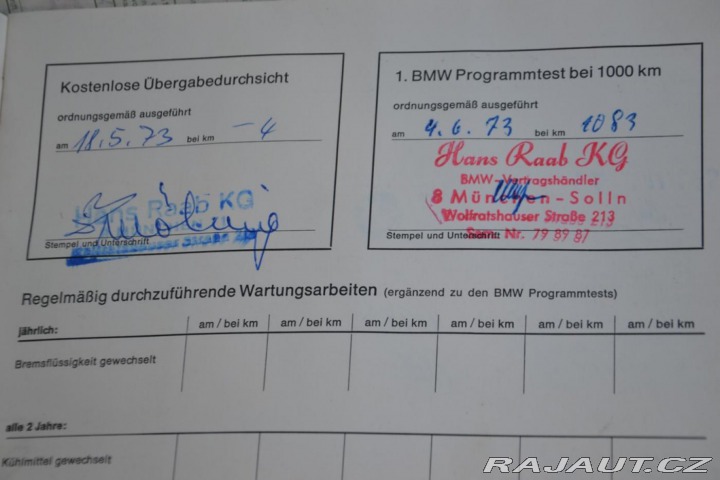 Kostenlose Übergabedurchsicht
ordnungsgemäß ausgeführt
am 18.5.73 bei km -4
Hans Raab KG
Stempel und Unterschrift
1. BMW Programmtest bei 1000 km
ordnungsgemäß ausgeführt
am 4.6.73 bei km 1083
Hans Raab KG
BMW-Vertragshändler
8 München-Solln
Wolfratshauser Straße 213
Sam. Nr. 79 89 87
Stempel und Unterschrift
Regelmäßig durchzuführende Wartungsarbeiten (ergänzend zu den BMW Programmtests)
jährlich: am / bei km am / bei km am / bei km am / bei km am / bei km am / bei km
Bremsflüssigkeit gewechselt
alle 2 Jahre:
Kühlmittel gewechselt
RAJAUT.CZ